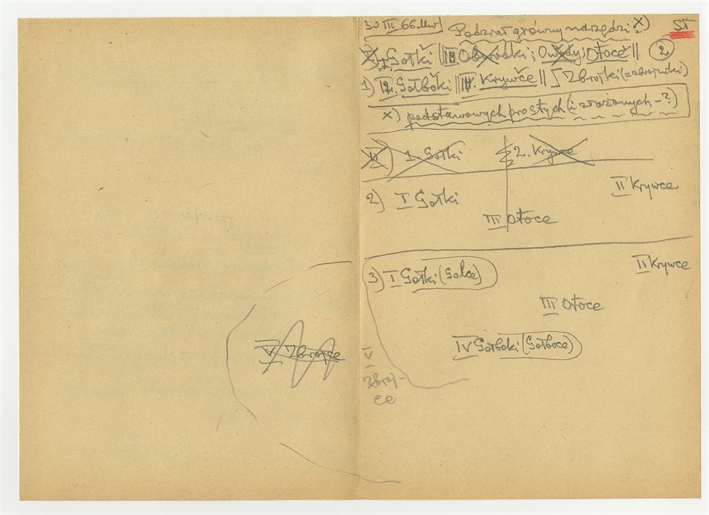 30 III 66. Mw
Podział główny narzędzi x) ST
I. Gołki || II Obwodki; Owody; Otoce || 2
1) II. Gołboki || III. Krywce || Zbrojki (= zbrojniki)
x) podstawowych prostych (i złożonych - ?)
1. Gołki 2. Krywce
2) I Gołki II Krywce
III Otoce
3) I Gołki (Golce) II Krywce
III Otoce
IV Gołboki (Gołboce)
V Zbrojce
V
Zbroj-
ce